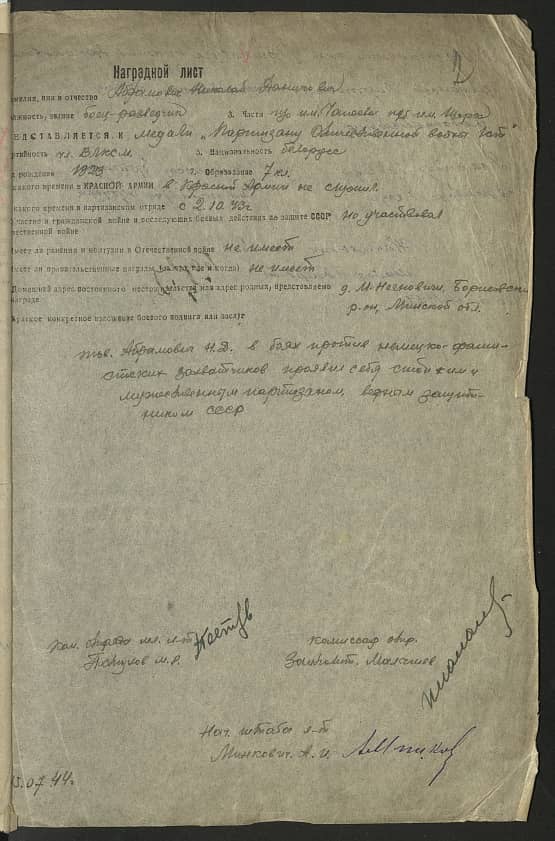 2
Наградной лист
амилия, имя и отчество Абрамович Николай
лжность, звание боец-разведчик 3. Часть п/о им. Чапаева п/бр им. Щорса
ЕДСТАВЛЯЕТСЯ К медали "Партизану Отечественной войны
ртийность чл. ВЛКСМ 5. Национальность белорус
д рождения 7. Образование 7 кл.
какого времени в КРАСНОЙ АРМИИ в Красной Армии не служил
какого времени в партизанском отряде с 2.10.43г.
Участие в гражданской войне и последующих боевых действиях по защите СССР не участвовал
ечественной войне
Имеет ли ранения и контузии в Отечественной войне не имеет
Имеет ли правительственные награды (какие, где и когда) не имеет
Домашний адрес постоянного местожительства или адрес родных, представленно д. Борисовск
награде р-он, Минской обл.
Краткое конкретное изложение боевого подвига или заслуг
тов. Абрамович Н.Д. в боях против немецко-фаши-
стских захватчиков проявил себя стойким и
мужественным партизаном, верным защит-
ником СССР
Ком. отряда мл. л-т
комиссар отр.
Нач. штаба л-т
Минкович А.И.
5.07.44г.